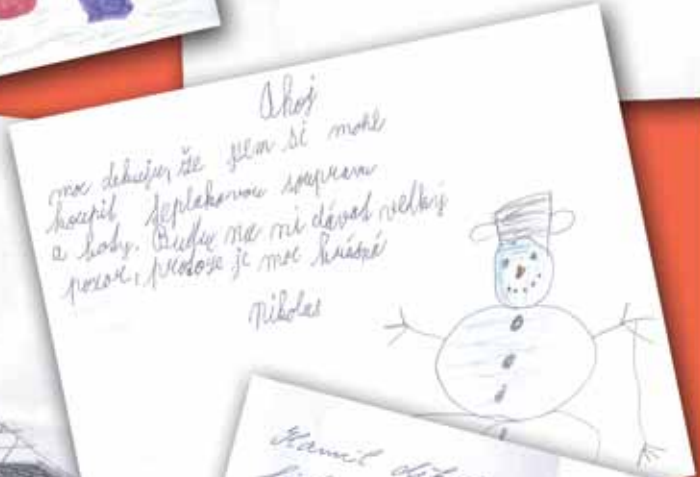 Ahoj
moc dekuju, že jsem si mohl
koupit teplakovou soupravu
a body. Budu na ni dávat velký
pozor, protože je moc krásná
Nikolas
Kamil